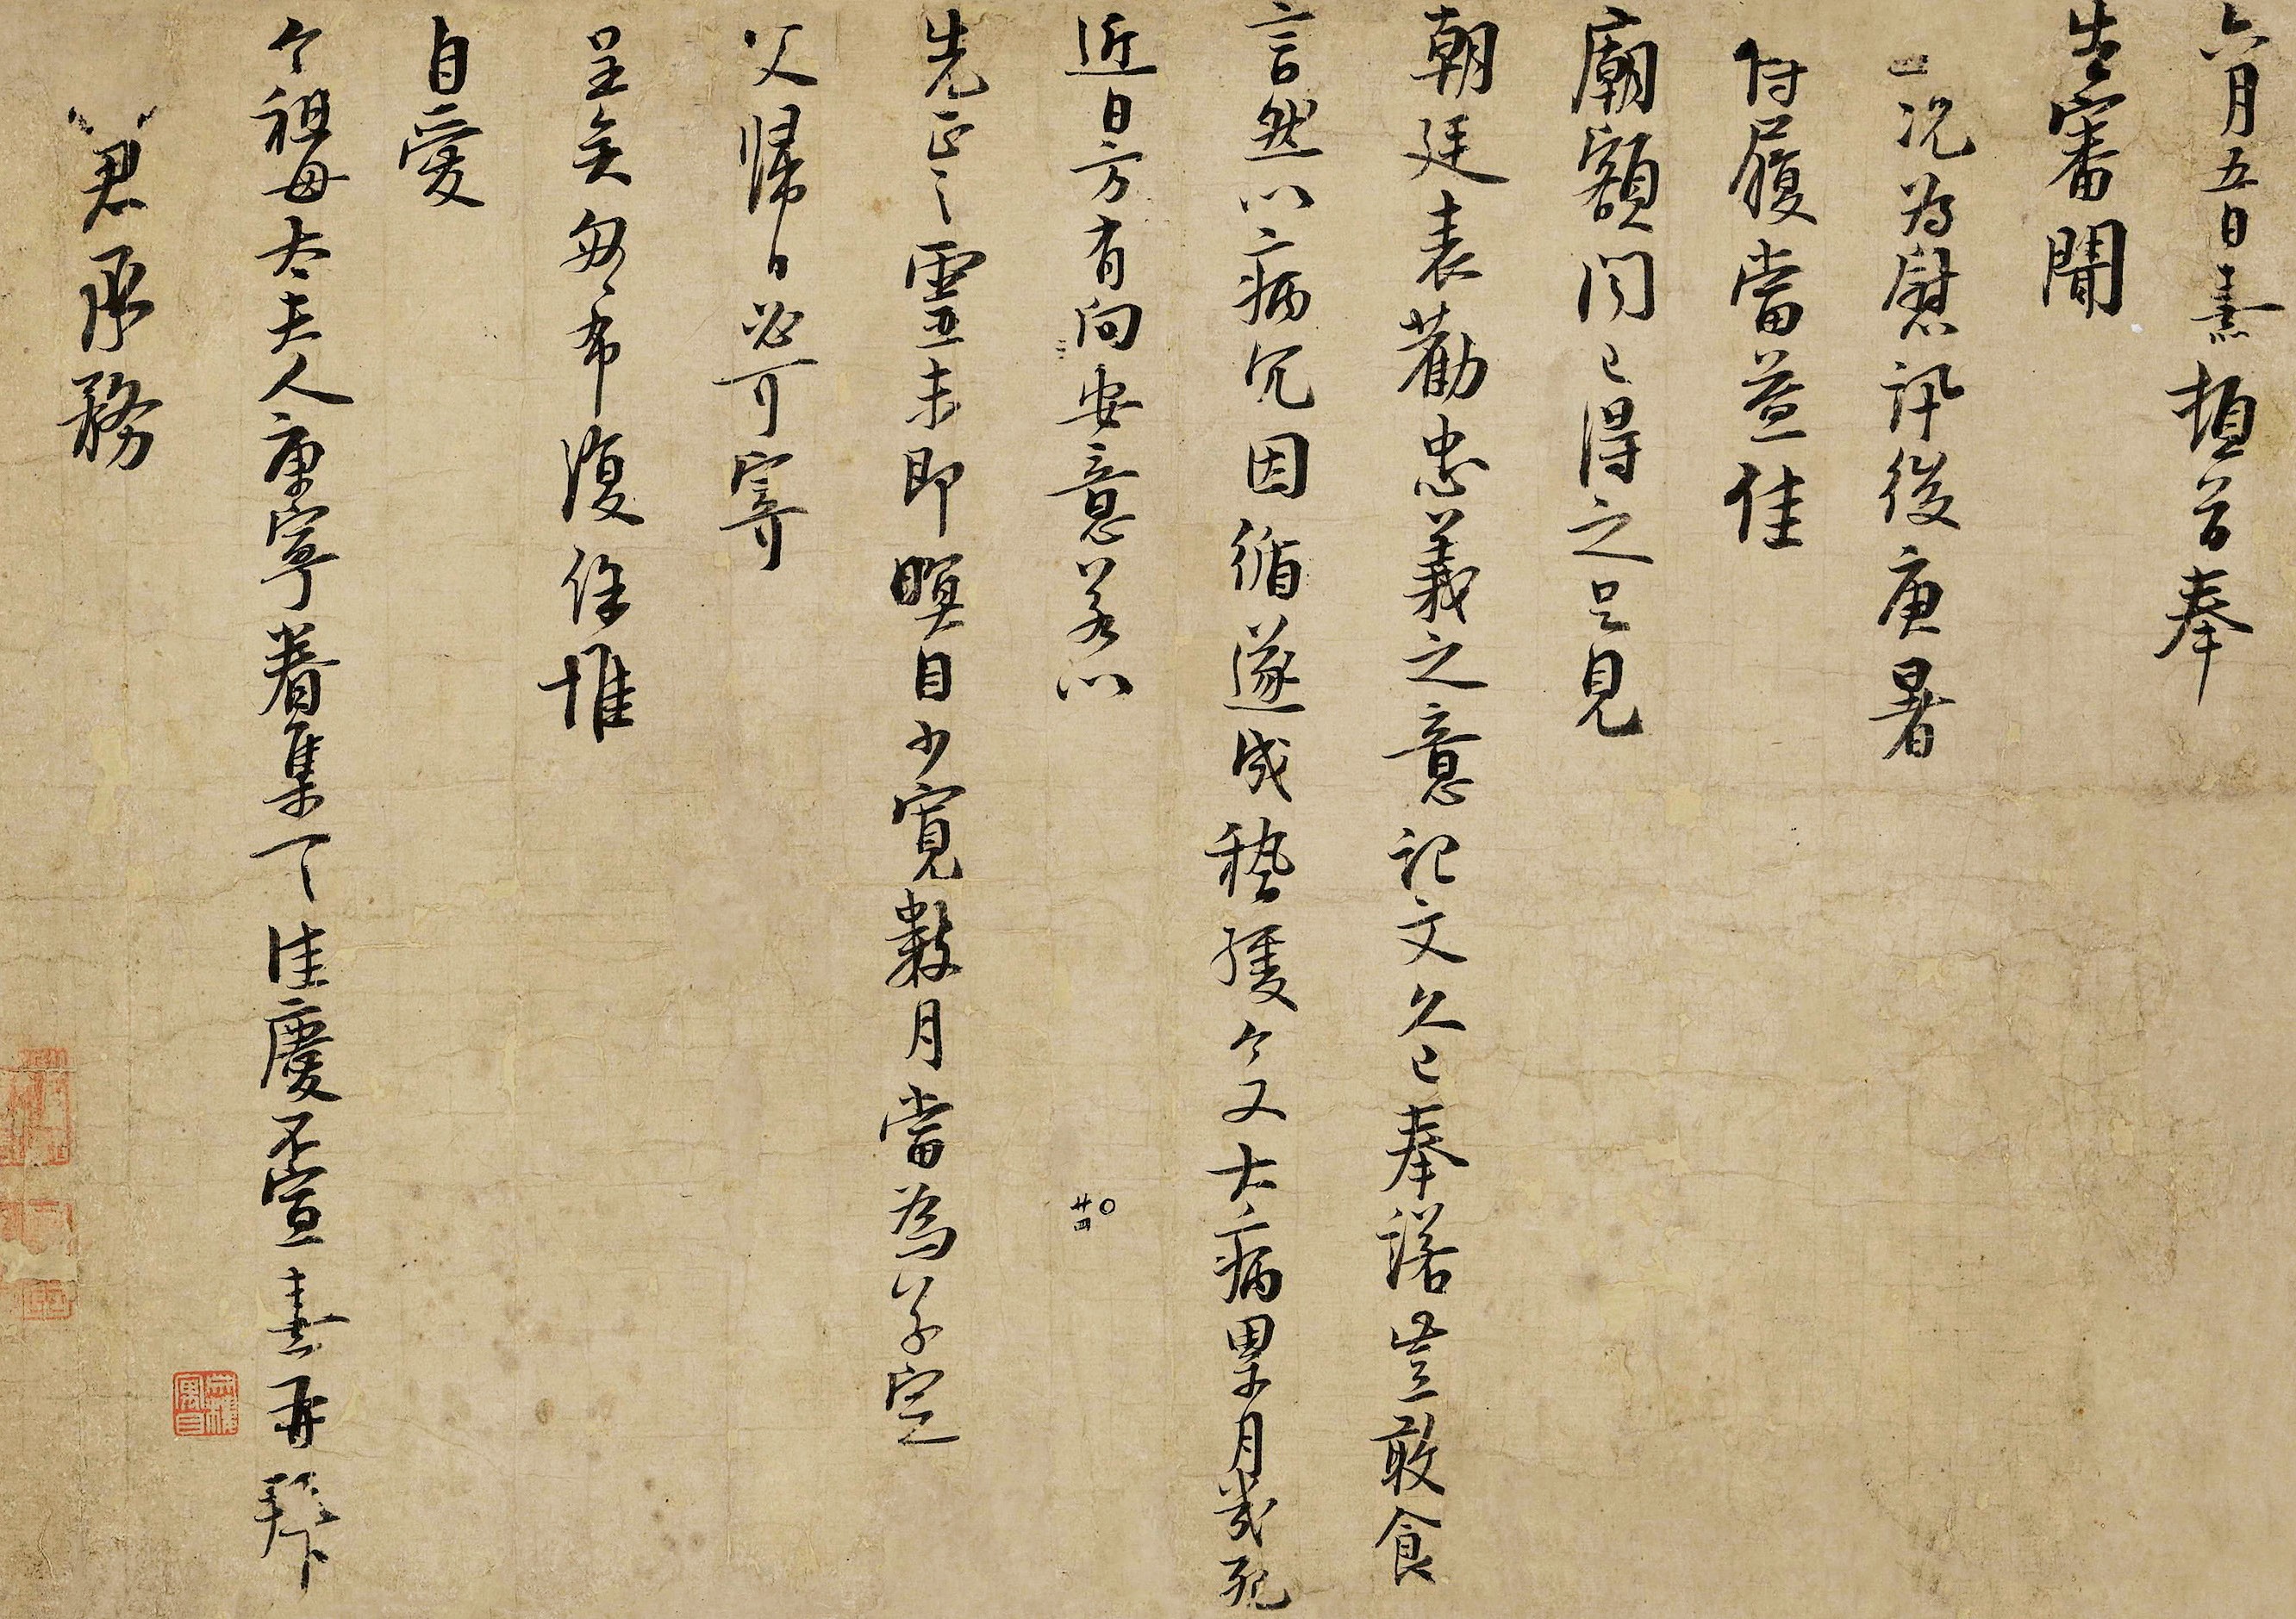 六月五日熹頓首奉
告審聞
況為慰訊後庚暑
侍履當益佳
廟額聞已得之足見
朝廷表勸忠義之意記文久已奉諾豈敢食
言然以病冗因循遂成稽緩今又大病累月幾死
近日方有向安意若以
先正之靈未即瞑目少寬數月當為草定
父歸日必可寄
呈矣匆匆布復餘惟
自愛
令祖母太夫人康寧眷集一一佳慶不宣熹再拜
君承務